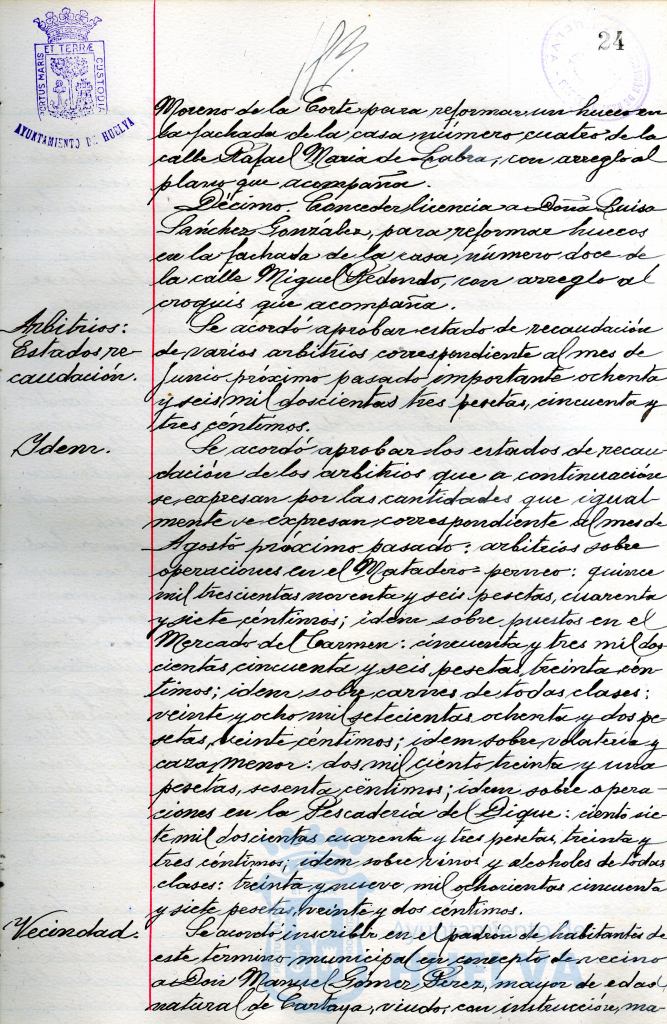 PORTUS MARIS ET TERRÆ CUSTODIA
AYUNTAMIENTO DE HUELVA
24
Moreno de la Corte para reformar un hueco en
la fachada de la casa número cuatro de la
calle Rafael Maria de Labra, con arreglo al
plano que acompaña.
Décimo. Conceder licencia a Doña Luisa
Sánchez González, para reformar huecos
en la fachada de la casa número doce de
la calle Miguel Redondo, con arreglo al
croquis que acompaña.
Arbitrios:
Estados re-
caudación.
Se acordó aprobar estado de recaudación
de varios arbitrios correspondiente al mes de
Junio próximo pasado importante ochenta
y seis mil doscientas tres pesetas, cincuenta y
tres céntimos.
Idem.
Se acordó aprobar los estados de recau-
dación de los arbitrios que a continuación
se expresan por las cantidades que igual-
mente se expresan, correspondiente al mes de
Agosto próximo pasado: arbitrios sobre
operaciones en el Matadero = perneo: quince
mil trescientas noventa y seis pesetas, cuarenta
y siete céntimos; idem sobre puestos en el
Mercado del Carmen: cincuenta y tres mil dos
cientas cincuenta y seis pesetas, treinta cén-
timos; idem sobre carnes de todas clases:
veinte y ocho mil setecientas ochenta y dos pe-
setas, veinte céntimos; idem sobre volatería y
caza menor: dos mil ciento treinta y una
pesetas, sesenta céntimos; idem sobre opera-
ciones en la Pescadería del Dique: ciento sie-
te mil doscientas cuarenta y tres pesetas, treinta y
tres céntimos; idem sobre vinos y alcoholes de todas
clases: treinta y nueve mil ochocientas cincuenta
y siete pesetas, veinte y dos céntimos.
Vecindad.
Se acordó inscribir en el padrón de habitantes de
este termino municipal en concepto de vecino
a Don Manuel Gómez Pérez, mayor de edad
natural de Cartaya, viudo, con instrucción, ma-
Ayuntamiento de
HUELVA